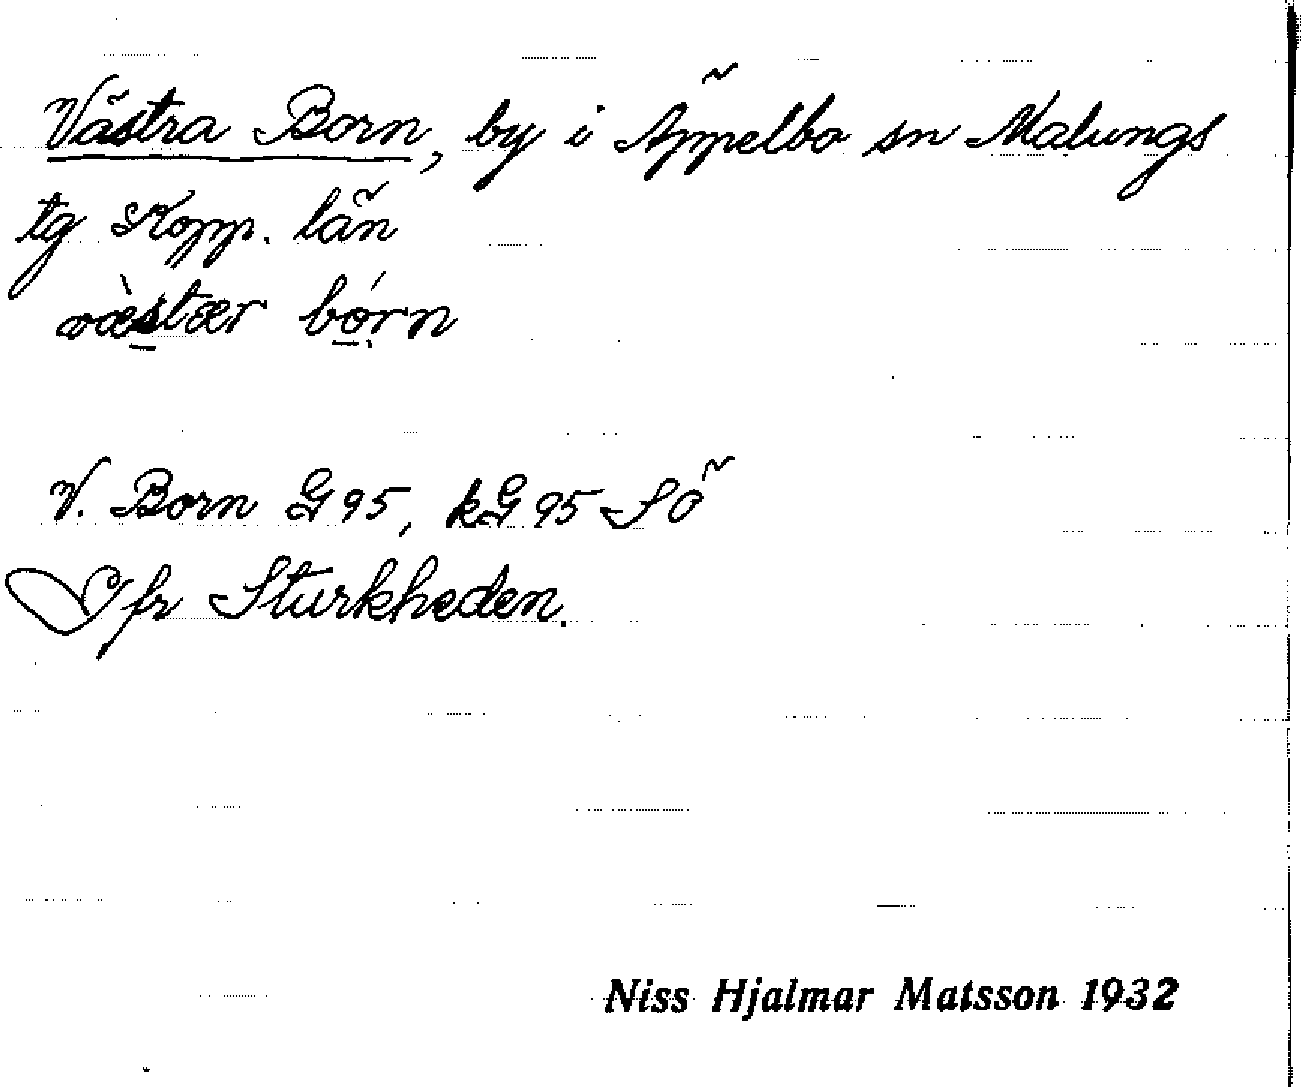 Västra Born, by i Äppelbo sn Malungs
tg Kopp. län
væ̀stær bórn
V. Born G 95, kG 95 SÖ
fr Sturkheden.
Niss Hjalmar Matsson 1932